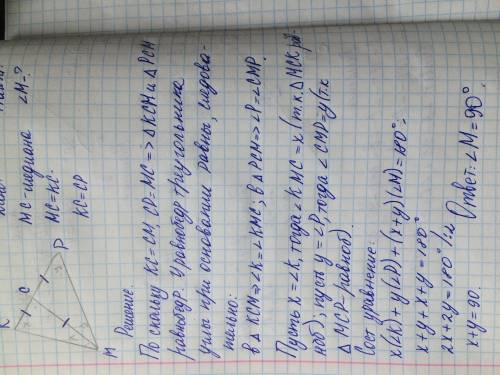 MC-медиана ∠M-?
MC=KC.
KC=CP
K
C
P
M
Решение.
По скольку KC=CM, CP=MC => △KCM и △PCM
равнобедр. У равнобедр треугольника
углы при основании равны, следова-
тельно:
в △KCM=>∠K=∠KMC; в △PCM=>∠P=∠CMP.
Пусть x=∠K, тогда ∠KMC=x (т.к. △MCK рав
нob); пусть y=∠P, тогда ∠CMP=y (т.к
△MCP-равноб).
Сост уравнение:
x(∠K)+y(∠P)+(x+y)(∠M)=180°.
x+y+x+y=180°
2x+2y=180° /:2
x+y=90. Ответ: ∠M=90°